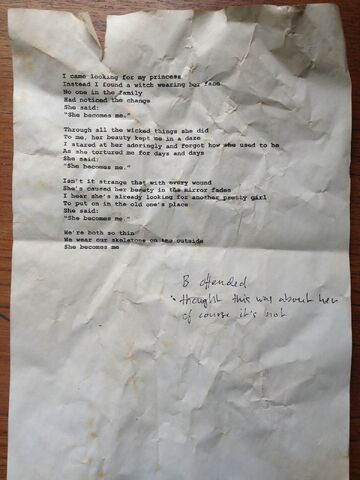 I came looking for my princess
Instead I found a witch wearing her face
No one in the family
Had noticed the change
She said:
"She becomes me."
Through all the wicked things she did
To me, her beauty kept me in a daze
I stared at her adoringly and forgot how she used to be
As she tortured me for days and days
She said:
"She becomes me."
Isn't it strange that with every wound
She's caused her beauty in the mirror fades
I hear she's already looking for another pretty girl
To put on in the old one's place
She said:
"She becomes me."
We're both so thin
We wear our skeletons on the outside
She becomes me
B offended
thought this was about her
of course it's not